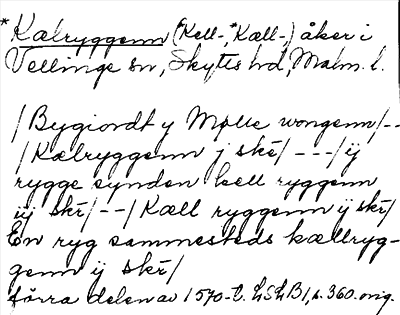 *Kælryggenn (Kell-, *Kæll-) åker i
Vellinge sn, Skytts hd, Malm. l.
/Bygiordt y Mølle wongenn/--
/Kælryggenn j skē/ ---/ij
rygge synden kell ryggenn
iij skē/--/Kæll ryggenn ij skē/
En ryg sammesteds kællryg-
genn ij skē/
förra delen av 1570-t. LSLB1, s. 360. orig.